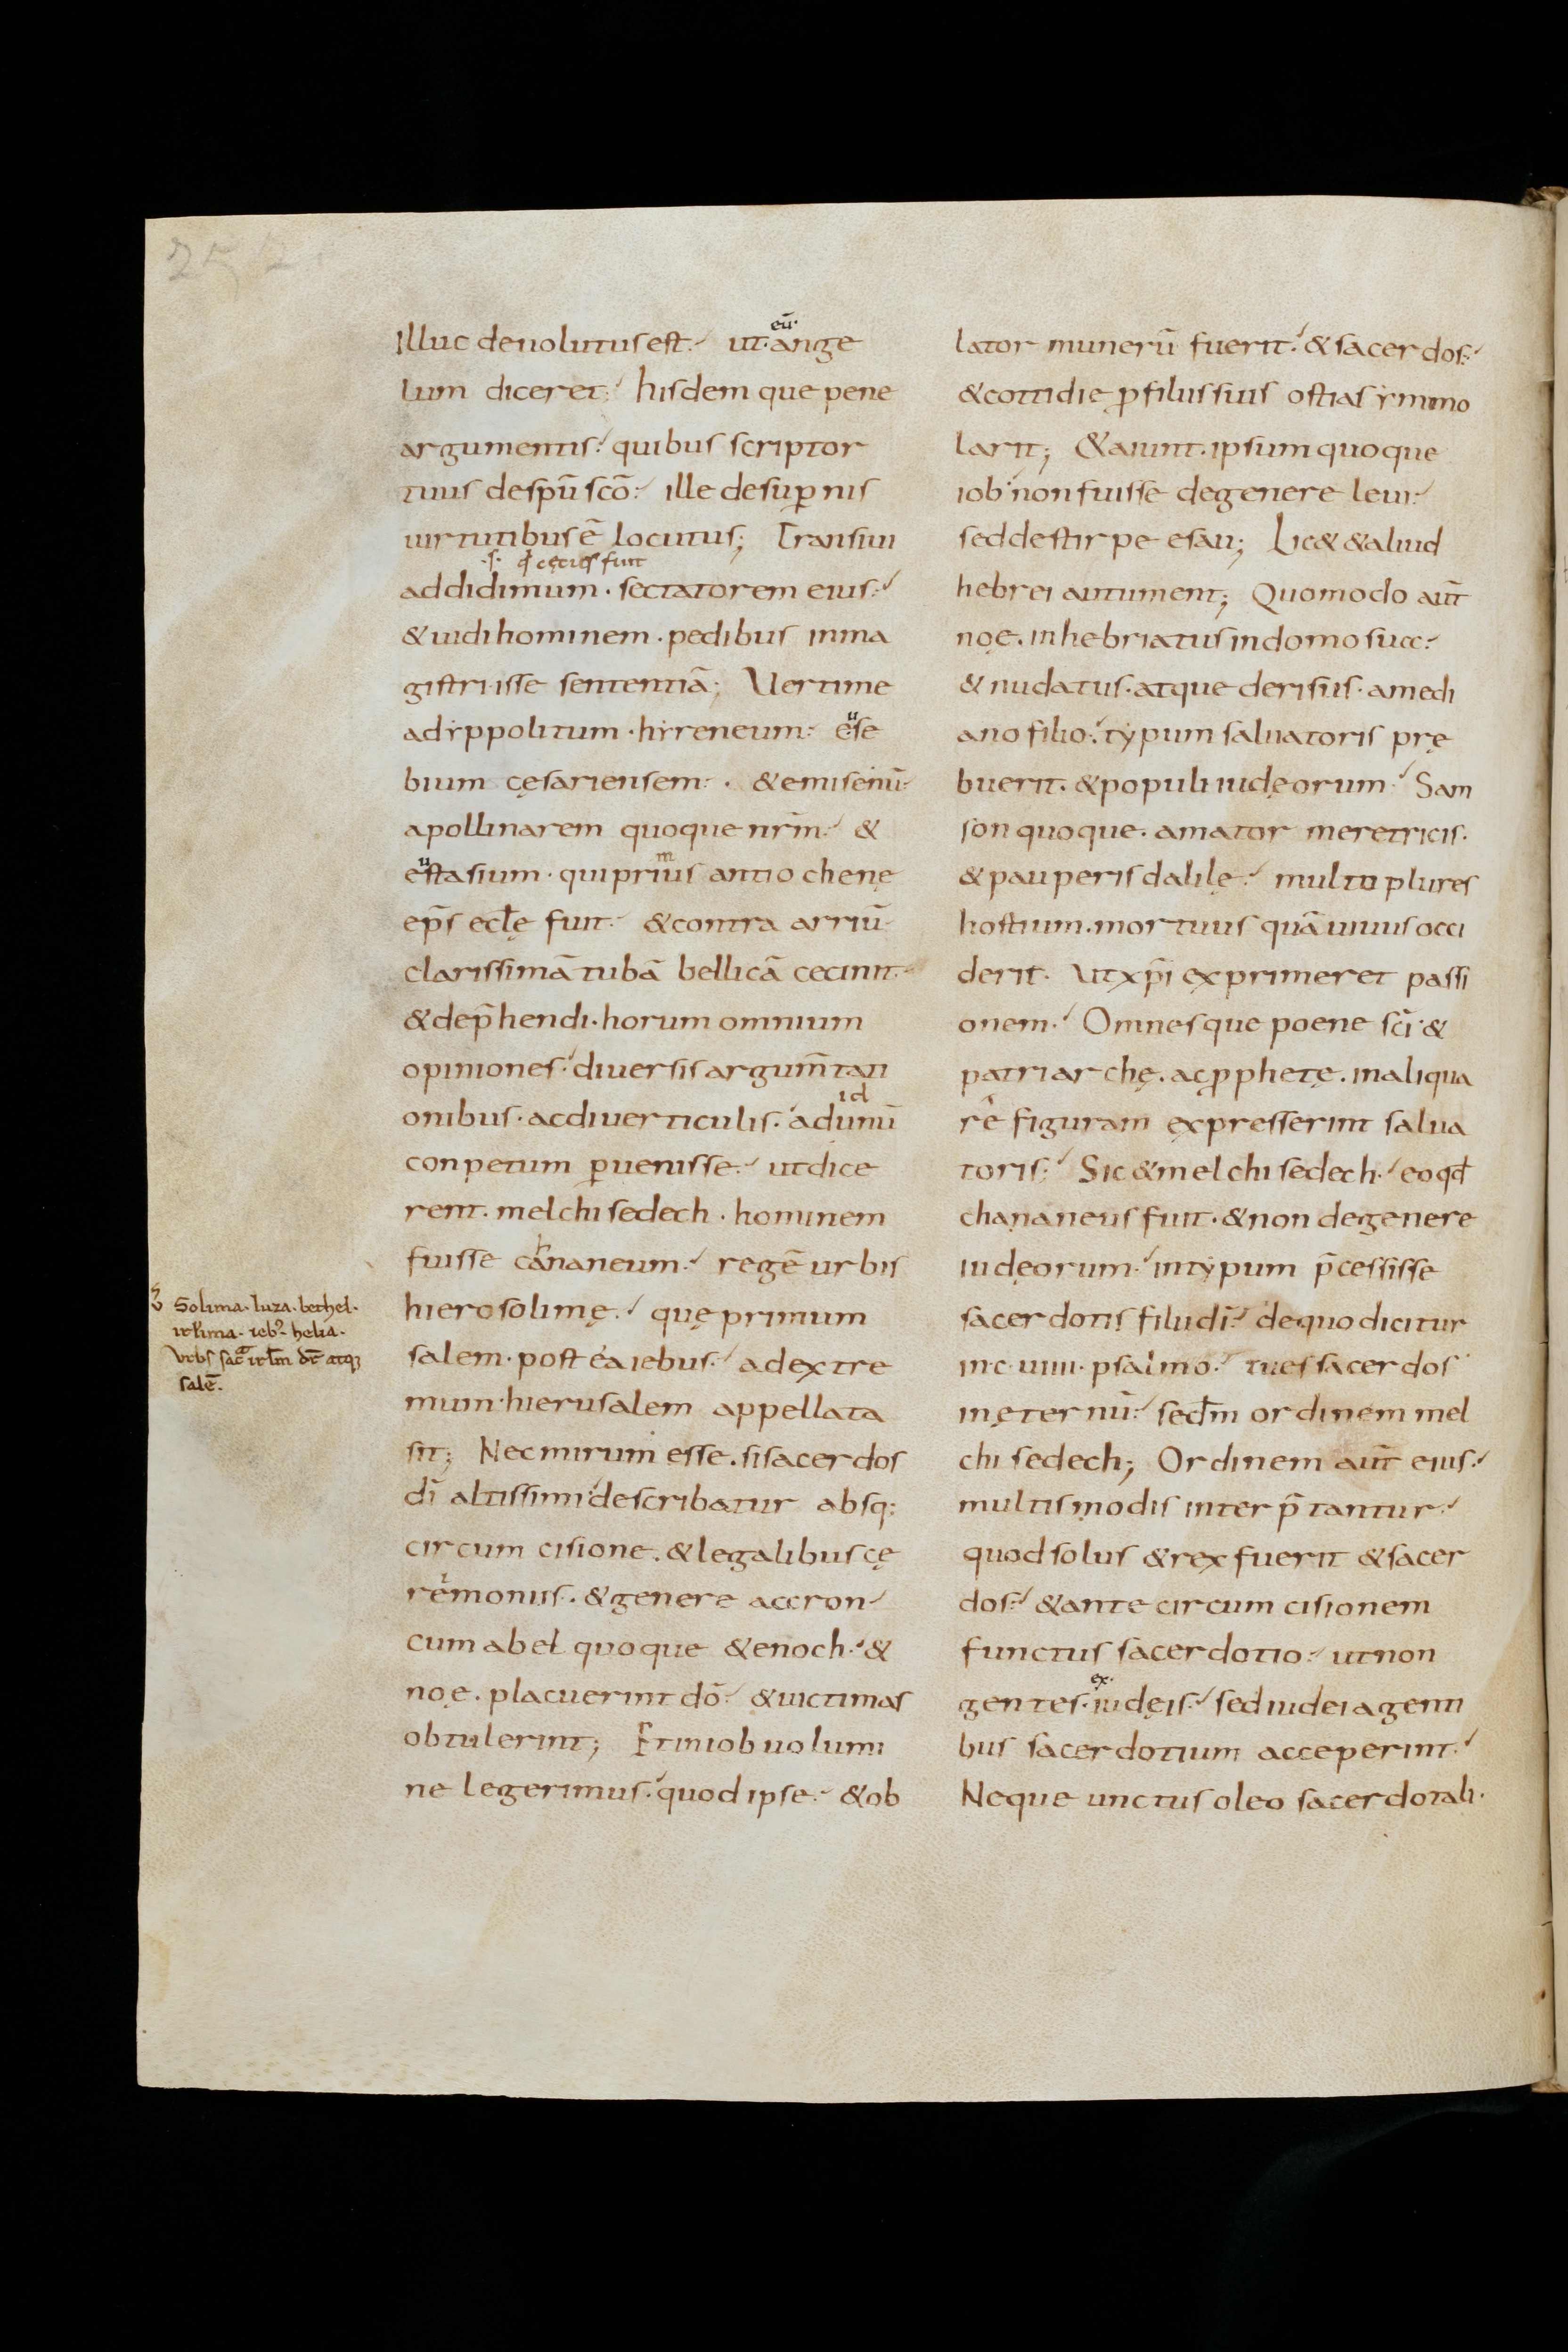 illuc deuolutus est. ut angelum
eū.
lum diceret. hisdemque pene
argumentis. quibus scriptor
tuus de spū scō. ille de sup̱nis
uirtutibus ē locutus; Transiui
.s. cęcus fuit
ad didimum. sectatorem eius.
& uidi hominem. pedibus in ma
gistri isse sententiā; Uertime
ad ẏppolitum. hẏreneum. euse
bium cęsariensem. & emisenū.
apollinarem quoque nr̄m. &
eustasium. qui primus antiochenę
ep̄s eccl̄ę fuit. & contra arriū.
clarissimā tubā bellicā cecinit.
& dep̄hendi. horum omnium
opiniones. diuersis argum̄tati
onibus. ac diuerticulis. ad id unū
conpetum p̱uenisse. ut dice
rent. melchisedech. hominem
fuisse chananeum. regē urbis
hierosolimę. quę primum
salem. post ea iebus. ad extre
mum. hierusalem appellata
sit; Nec mirum esse. si sacerdos
dī altissimi describatur absq;
circumcisione. & legalibus cę
remoniis. & genere aaron.
cum abel quoque & enoch. &
noę. placuerint dō. & uictimas
obtulerint; Et in iob uolumi
ne legerimus. quod ipse. & ob
Solima. luza. bethel.
ierl̄ima. ieb᾽. helia.
Vrbs sacra ierl̄m dr̄ atq;
salē.
lator munerū fuerit. & sacerdos.
& cottidie p̱ filiis suis ostias ẏmmo
larit; & aiunt. ipsum quoque
iob non fuisse de genere leui.
sed de stirpe esau; Lic& & aliud
hebrei autument; Quomodo aūt
noę. inhebriatus in domo sua.
& nudatus. atque derisus. a medi
ano filio. tẏpum saluatoris prę
buerit. & populi iudęorum. Sam
son quoque. amator meretricis.
& pauperis dalilę. multo plures
hostium. mortuus quā uiuus occi
derit. Ut xp̄i exprimeret passi
onem. Omnesque poene sc̄i. &
patriarchę. ac p̱phetę. in aliqua
re figuram expresserint salua
toris. Sic & melchisedech. eo qđ
chananeus fuit. & non de genere
iudęorum. in tẏpum p̄cessisse
sacerdotis filii dī. de quo dicitur
in .c. uiiii. psalmo. tu es sacerdos
in ęternū. sec̄dm ordinem mel
chisedech; Ordinem aūt eius.
multis modis interp̄tantur.
quod solus & rex fuerit & sacer
dos. & ante circumcisionem
functus sacerdotio. ut non
gentes. ex iudęis. sed iudei a genti
bus sacerdotium acceperint.
Neque unctus oleo sacerdotali.